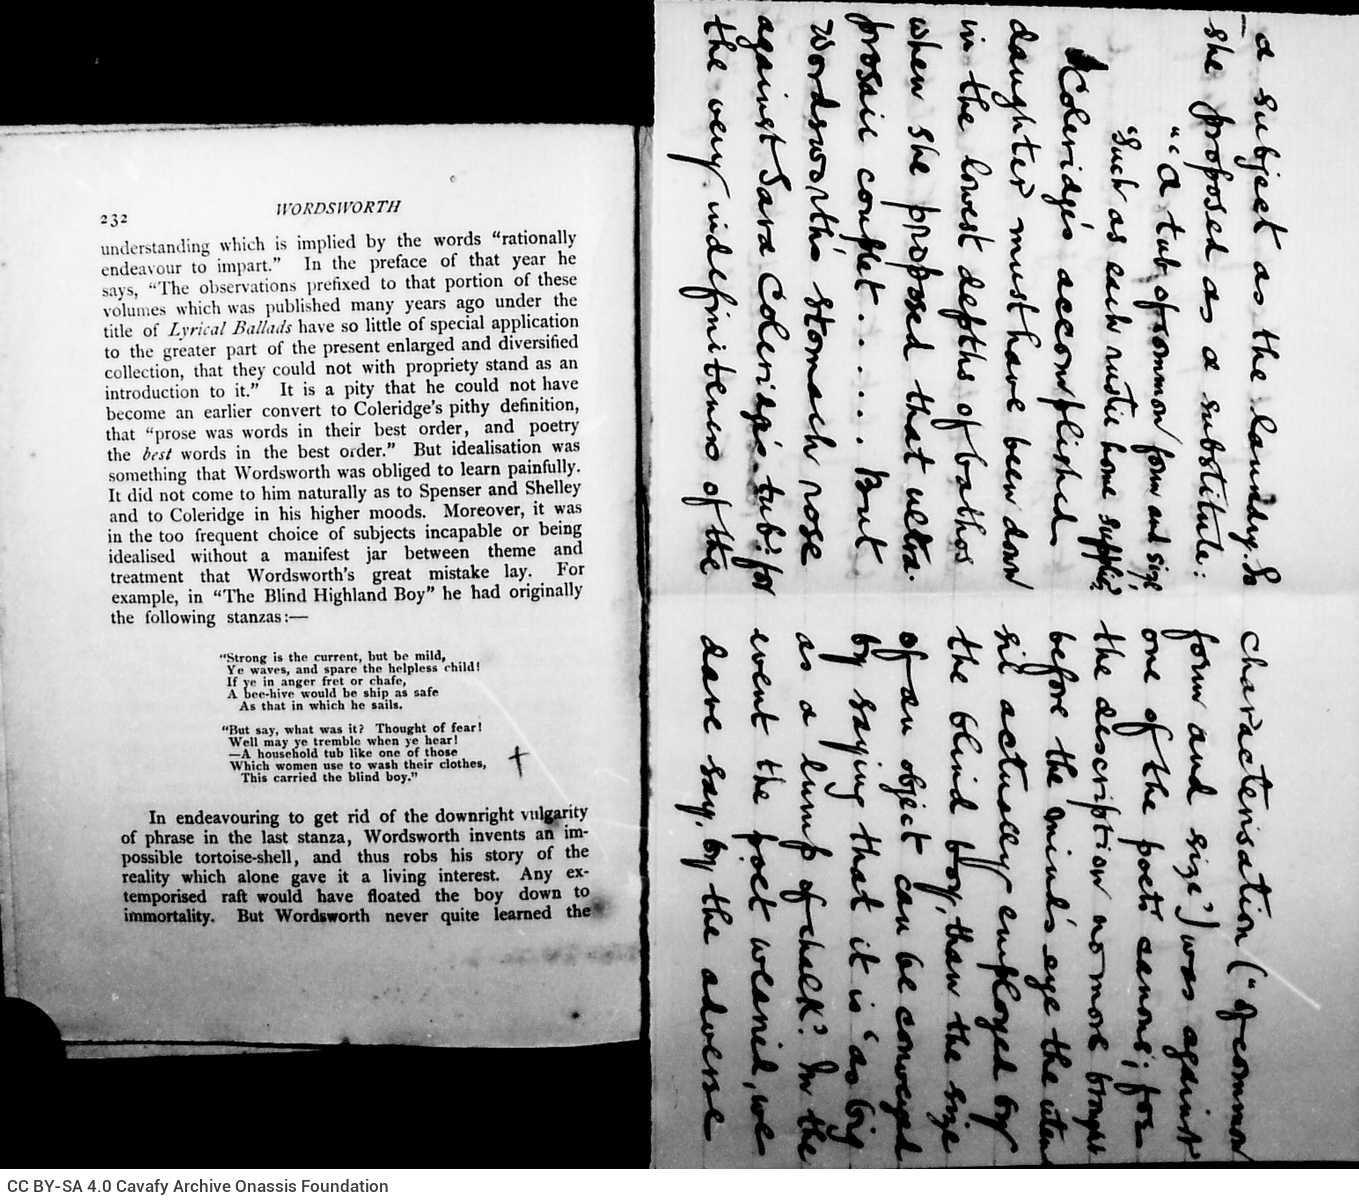 232
WORDSWORTH
understanding which is implied by the words “rationally
endeavour to impart.” In the preface of that year he
says, “The observations prefixed to that portion of these
volumes which was published many years ago under the
title of Lyrical Ballads have so little of special application
to the greater part of the present enlarged and diversified
collection, that they could not with propriety stand as an
introduction to it.” It is a pity that he could not have
become an earlier convert to Coleridge’s pithy definition,
that “prose was words in their best order, and poetry
the best words in the best order.” But idealisation was
something that Wordsworth was obliged to learn painfully.
It did not come to him naturally as to Spenser and Shelley
and to Coleridge in his higher moods. Moreover, it was
in the too frequent choice of subjects incapable or being
idealised without a manifest jar between theme and
treatment that Wordsworth’s great mistake lay. For
example, in “The Blind Highland Boy” he had originally
the following stanzas:—
“Strong is the current, but be mild,
Ye waves, and spare the helpless child!
If ye in anger fret or chafe,
A bee-hive would be ship as safe
As that in which he sails.
“But say, what was it? Thought of fear!
Well may ye tremble when ye hear!
—A household tub like one of those
Which women use to wash their clothes,
This carried the blind boy.”
In endeavouring to get rid of the downright vulgarity
of phrase in the last stanza, Wordsworth invents an im-
possible tortoise-shell, and thus robs his story of the
reality which alone gave it a living interest. Any ex-
temporised raft would have floated the boy down to
immortality. But Wordsworth never quite learned the
a subject as the laundry. So
she proposed as a substitute:
“‘A tub of common form and size
‘Such as each rustic home supplies.’
Coleridge's accomplished
daughter must have been down
in the lowest depths of bathos
when she proposed that ultra-
prosaic couplet..... But
Wordsworth's stomach rose
against Sara Coleridge's tub: for
the very indefiniteness of the
characterisation (“of common
form and size’) was against
one of the poet's canons; for
the description no more brought
before the mind's eye the uten-
sil actually employed by
the blind boy, than the size
of an object can be conveyed
by saying that it is ‘as big
as a lump of chalk’. In the
event the poet weaned, we
dare say, by the adverse
CC BY-SA 4.0 Cavafy Archive Onassis Foundation